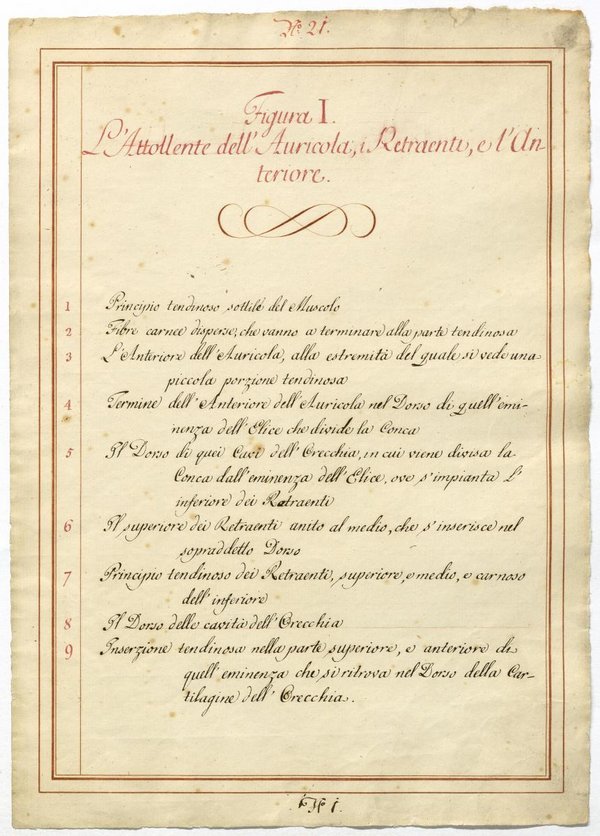 No. 21.
Figura I.
L'Attollente dell'Auricola, i Retraenti, e l'An-
teriore.
1 Principio tendinoso sottile del Muscolo
2 Fibre carnee disperse, che vanno a terminare alla parte tendinosa
3 L'Anteriore dell'Auricola, alla estremità del quale si vede una
piccola porzione tendinosa
4 Termine dell'Anteriore dell'Auricola nel Dorso di quell'emi-
nenza dell'Elice che divide la Conca
5 Il Dorso di quei Cavi dell'Orecchia, in cui viene divisa la
Conca dall'eminenza dell'Elice, ove s'impianta l'
inferiore dei Retraenti
6 Il superiore dei Retraenti unito al medio, che s'inserisce nel
sopraddetto Dorso
7 Principio tendinoso dei Retraenti, superiore, e medio, e carnoso
dell'inferiore
8 Il Dorso delle cavità dell'Orecchia
9 Inserzione tendinosa nella parte superiore, e anteriore di
quell'eminenza che si ritrova nel Dorso della Car-
tilagine dell'Orecchia.